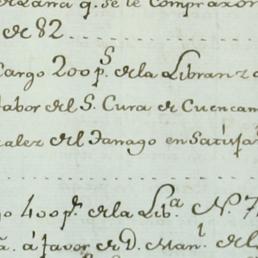 de Lana q. se le Compraron
de 82
Cargo 200 p.s de la Libranz
fabor del S. Cura de Cuencam
zalez del Tanago en Satisfa
o 400 p.s de la Lib.a N. 7
á favor de D. Man.l de l